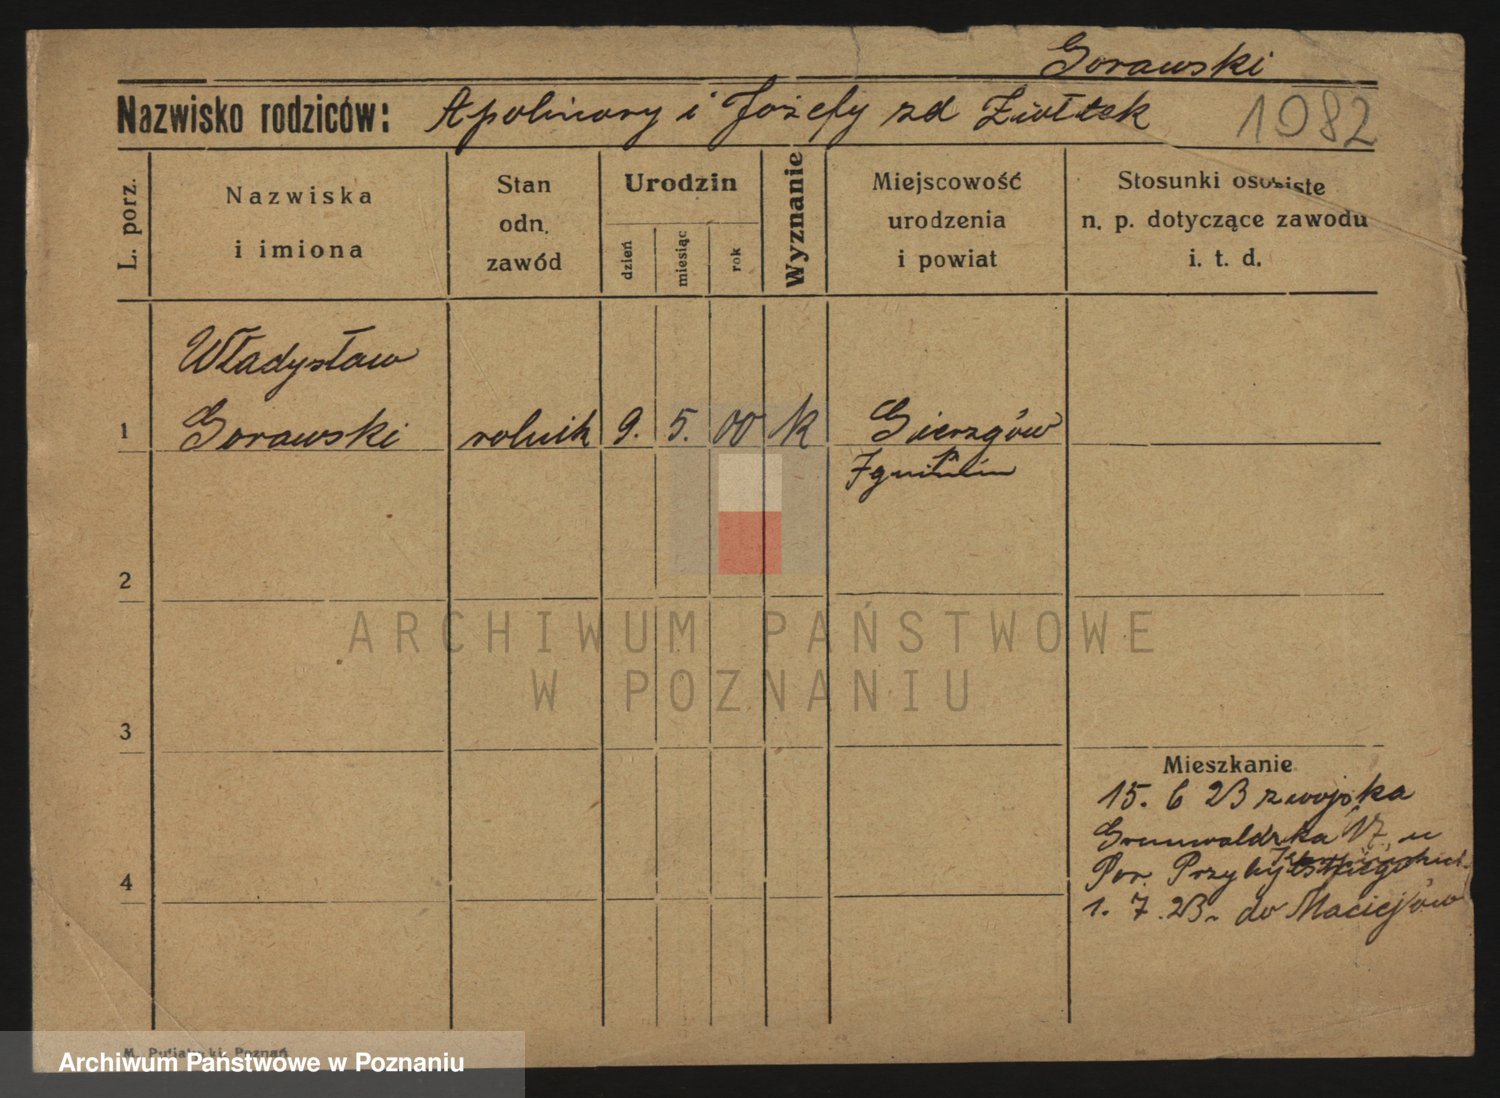 Gorawski
Nazwisko rodziców: Apolinary i Józefy zd Ziółtek
1082
L. porz.
Nazwiska
i imiona
Stan
odn.
zawód
Urodzin
dzień
miesiąc
rok
Wyznanie
Miejscowość
urodzenia
i powiat
Stosunki osobiste
n. p. dotyczące zawodu
i. t. d.
Władysław
1 Gorawski rolnik 9. 5. 00 k Gierzgów
2
ARCHIWUM PAŃSTWOWE
W POZNANIU
3
Mieszkanie
15. 6 23 z wojska
Grunwaldzka 17 u
4
Por. Przybylskiego
1. 7. 23. do Maciejów
M. Putiatycki, Poznań
Archiwum Państwowe w Poznaniu